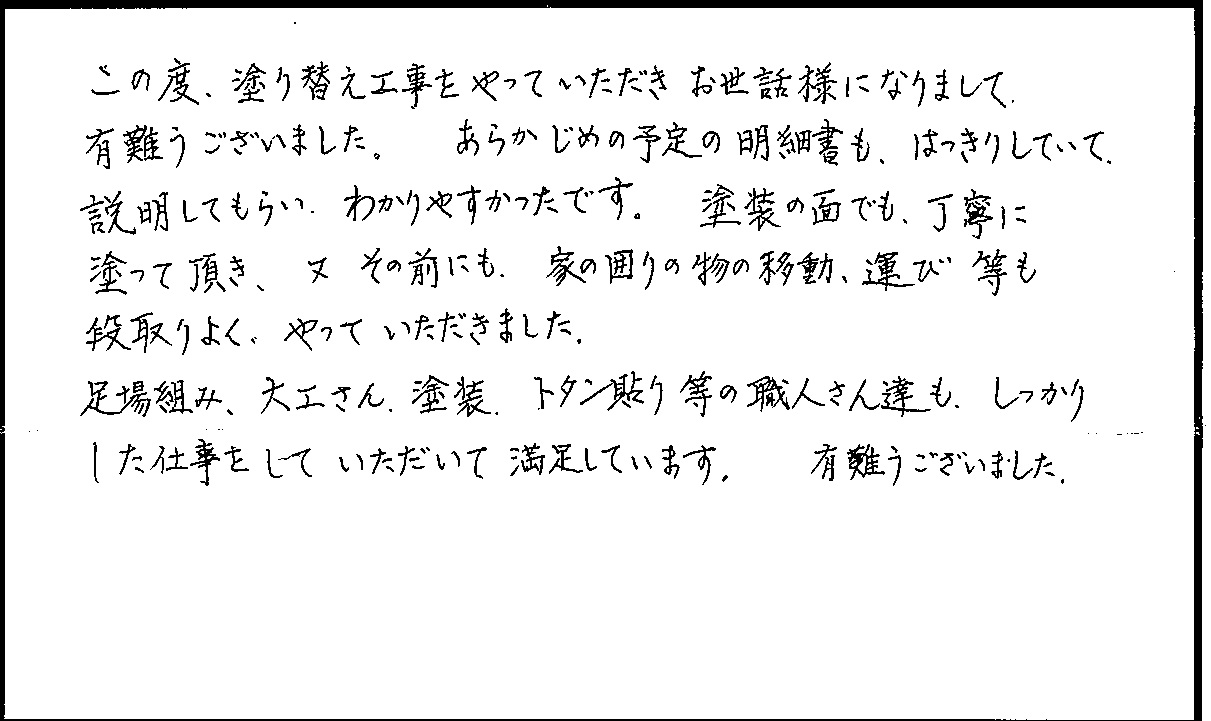 この度、塗り替え工事をやっていただき お世話様になりまして、
有難うございました。 あらかじめの予定の明細書も、はっきりしていて、
説明してもらい、わかりやすかったです。 塗装の面でも、丁寧に
塗って頂き、又 その前にも、家の囲りの物の移動、運び 等も
段取りよく、やって いただきました。
足場組み、大工さん、塗装、トタン貼り 等の職人さん達も、しっかり
した仕事をして いただいて 満足しています。 有難うございました。